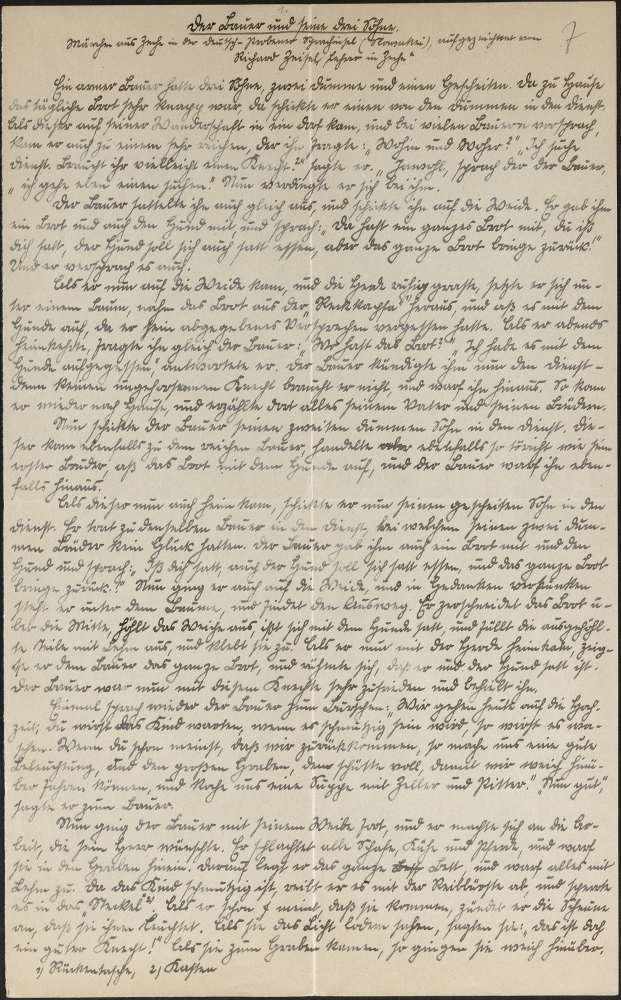 1.
Der Bauer und seine drei Söhne.
Märchen aus Zeche in der Deutsch-Probener Sprachinsel (Slowakei), aufgezeichnet von
Richard Zeisel, Lehrer in Zeche"
7
Ein armer Bauer hatte drei Söhne, zwei dumme und einen Gescheiten. Da zu Hause
das tägliche Brot sehr knapp war, da schickte er einen von den Dummen in den Dienst.
Als dieser auf seiner Wanderschaft in ein Dorf kam, und bei vielen Bauern vorsprach,
kam er auch zu einem sehr reichen, der ihn fragte: „Wohin und Woher?" „Ich suche
Dienst. Braucht ihr vielleicht einen Knecht?" sagte er. „Jawohl, sprach der der Bauer,
„ich gehe eben einen suchen." Nun verdingte er sich bei ihm.
Der Bauer sattelte ihn auch gleich aus, und schickte ihn auf die Weide. Er gab ihm
ein Brot und auch den Hund mit, und sprach: „Da hast ein ganzes Brot mit, du iß
dich satt, der Hund soll sich auch satt essen, aber das ganze Brot bringe zurück!"
Und er versprach es auch.
Als er nun auf die Weide kam, und die Herde ruhig graste, setzte er sich un-
ter einem Baum, nahm das Brot aus der „Reckkapsa" heraus, und aß es mit dem
Hunde auch, da er sein abgegebenes Versprechen vergessen hatte. Als er abends
heimkehrte, fragte ihn gleich der Bauer: „Wo hast das Brot?" „Ich habe es mit dem
Hunde aufgegessen," antwortete er. Der Bauer kündigte ihm nun den Dienst-
denn keinen ungehorsamen Knecht braucht er nicht, und warf ihn hinaus. So kam
er wieder nach Hause, und erzählte dort alles seinem Vater und seinen Brüdern.
Nun schickte der Bauer seinen zweiten dummen Sohn in den Dienst. Die-
ser kam ebenfalls zu dem reichen Bauer, handelte ebenfalls so töricht wie sein
erster Bruder, aß das Brot mit dem Hunde auf, und der Bauer warf ihn eben-
falls hinaus.
Als dieser nun auch heim kam, schickte er nun seinen gescheiten Sohn in den
Dienst. Er trat zu denselben Bauer in den Dienst, bei welchem seinen zwei dum-
men Brüder kein Glück hatten. Der Bauer gab ihm auch ein Brot mit und den
Hund und sprach: „Iß dich satt, auch der Hund soll sich satt essen, und das ganze Brot
bringe zurück!" Nun ging er auch auf die Weide, und in Gedanken versunken
steht er unter dem Baume, und findet den Ausweg. Er zerschneidet das Brot ü-
ber die Mitte, höhlt das Weiche aus, ißt sich mit dem Hunde satt, und füllt die ausgehöhl-
te Teile mit Lehm aus, und klebt sie zu. Als er nun mit der Herde heimkam, zeig-
te er dem Bauer das ganze Brot, und rühmte sich, daß er und der Hund satt ist.
Der Bauer war nun mit diesem Knechte sehr zufrieden und behielt ihn.
Einmal sprach wieder der Bauer zum Burschen: „Wir gehen heute auf die Hoch-
zeit; du wirst das Kind warten, wenn es schmutzig sein wird, so wirst es wa-
schen. Wenn du schon meinst, daß wir zurückkommen, so mache uns eine gute
Beleuchtung, und den großen Graben, den schütte voll, damit wir weich hinü-
ber fahren können, und koche uns eine Suppe mit Zeller und Pitter." „Nun gut,"
sagte er zum Bauer.
Nun ging der Bauer mit seinem Weibe fort, und er machte sich an die Ar-
beit, die sein Herr wünschte. Er schlachtet alle Schafe, Kühe und Pferde, und warf
sie in den Graben hinein. Darauf legt er das ganze Bett, und warf alles mit
Lehm zu. Da das Kind schmutzig ist, reibt er es mit der Reibbürste ab, und sperrte
es in das „Steckel" 2). Als er schon meint, daß sie kommen, zündet er die Scheune
an, daß sie ihnen leuchtet. Als sie das Licht lodern sahen, sagten sie: „das ist doch
ein guter Knecht!" Als sie zum Graben kamen, so gingen sie weich hinüber.
1) Rückentasche, 2) Kasten